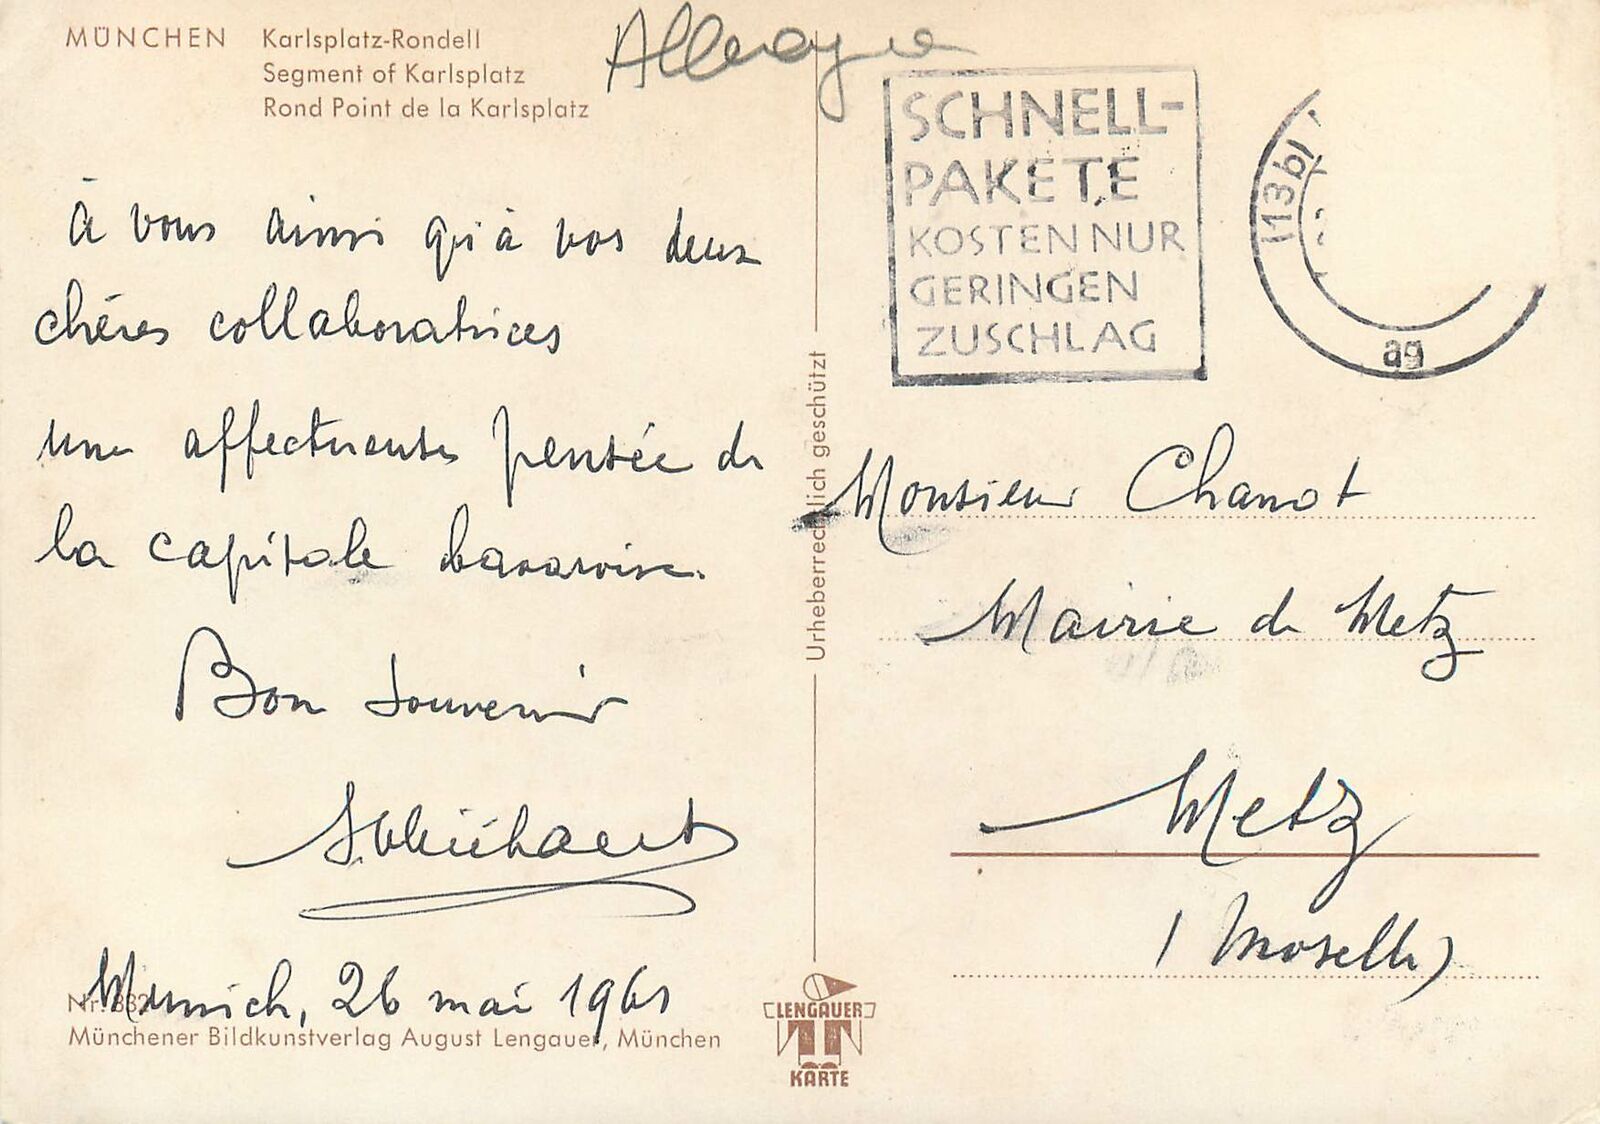 MÜNCHEN Karlsplatz-Rondell
Segment of Karlsplatz
Rond Point de la Karlsplatz
Allemagne
SCHNELL-
PAKETE
KOSTEN NUR
GERINGEN
ZUSCHLAG
(13b)
ag
à vous ainsi qu'à vos deux
chères collaboratrices
une affectueuse pensée de
la capitale bavaroise.
Bon souvenir
Munich, 26 mai 1961
Münchener Bildkunstverlag August Lengauer, München
Urheberrechtlich geschützt
LENGAUER
KARTE
Monsieur Chanot
Mairie de Metz
Metz
(Moselle)